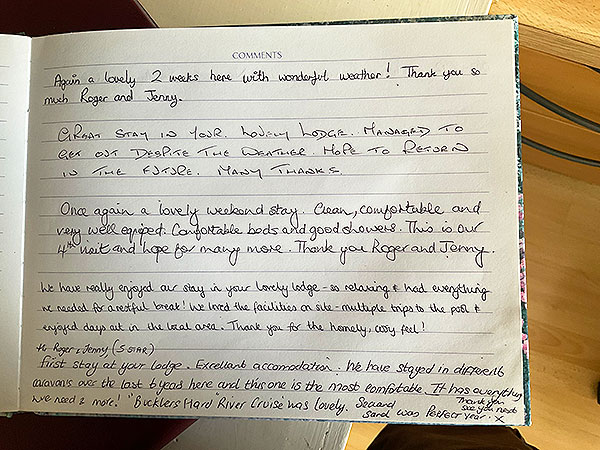 COMMENTS
Again a lovely 2 weeks here with wonderful weather! Thank you so
much Roger and Jenny.
GREAT STAY IN YOUR LOVELY LODGE. MANAGED TO
GET OUT DESPITE THE WEATHER. HOPE TO RETURN
IN THE FUTURE. MANY THANKS.
Once again a lovely weekend stay. Clean, comfortable and
very well equiped. Comfortable beds and good showers. This is our
4th visit and hope for many more. Thank you Roger and Jenny.
We have really enjoyed our stay in your lovely lodge - so relaxing & had everything
we needed for a restful break! We loved the facilities on site - multiple trips to the pool &
enjoyed days out in the local area. Thank you for the homely, cosy feel!
Hi Roger & Jenny (5 STAR)
First stay at your lodge. Excellant accomodation. We have stayed in different
caravans over the last 6 years here and this one is the most comfortable. It has everything
we need & more! "Bucklers Hard" River Cruise was lovely.
sand was perfect
Thank you
see you next
year. X